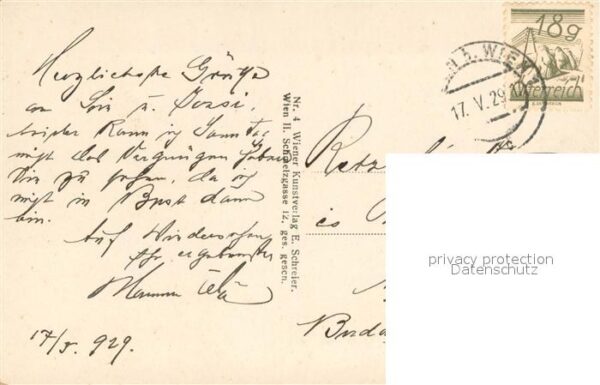 Herzlichste Grüße
an Sie u. Jozsi.
leider kann ich Sonntag
nicht das Vergnügen haben
Sie zu sehen, da ich
nicht in Bpest dann
bin.
Auf Wiedersehen
Ihr ergebenster
17/5. 929.
Nr. 4 Wiener Kunstverlag E. Schreier.
Wien II. Schmelzgasse 12, ges. gesch.
18g
Österreich
WIEN
17. V. 29
és
Buda
privacy protection
Datenschutz